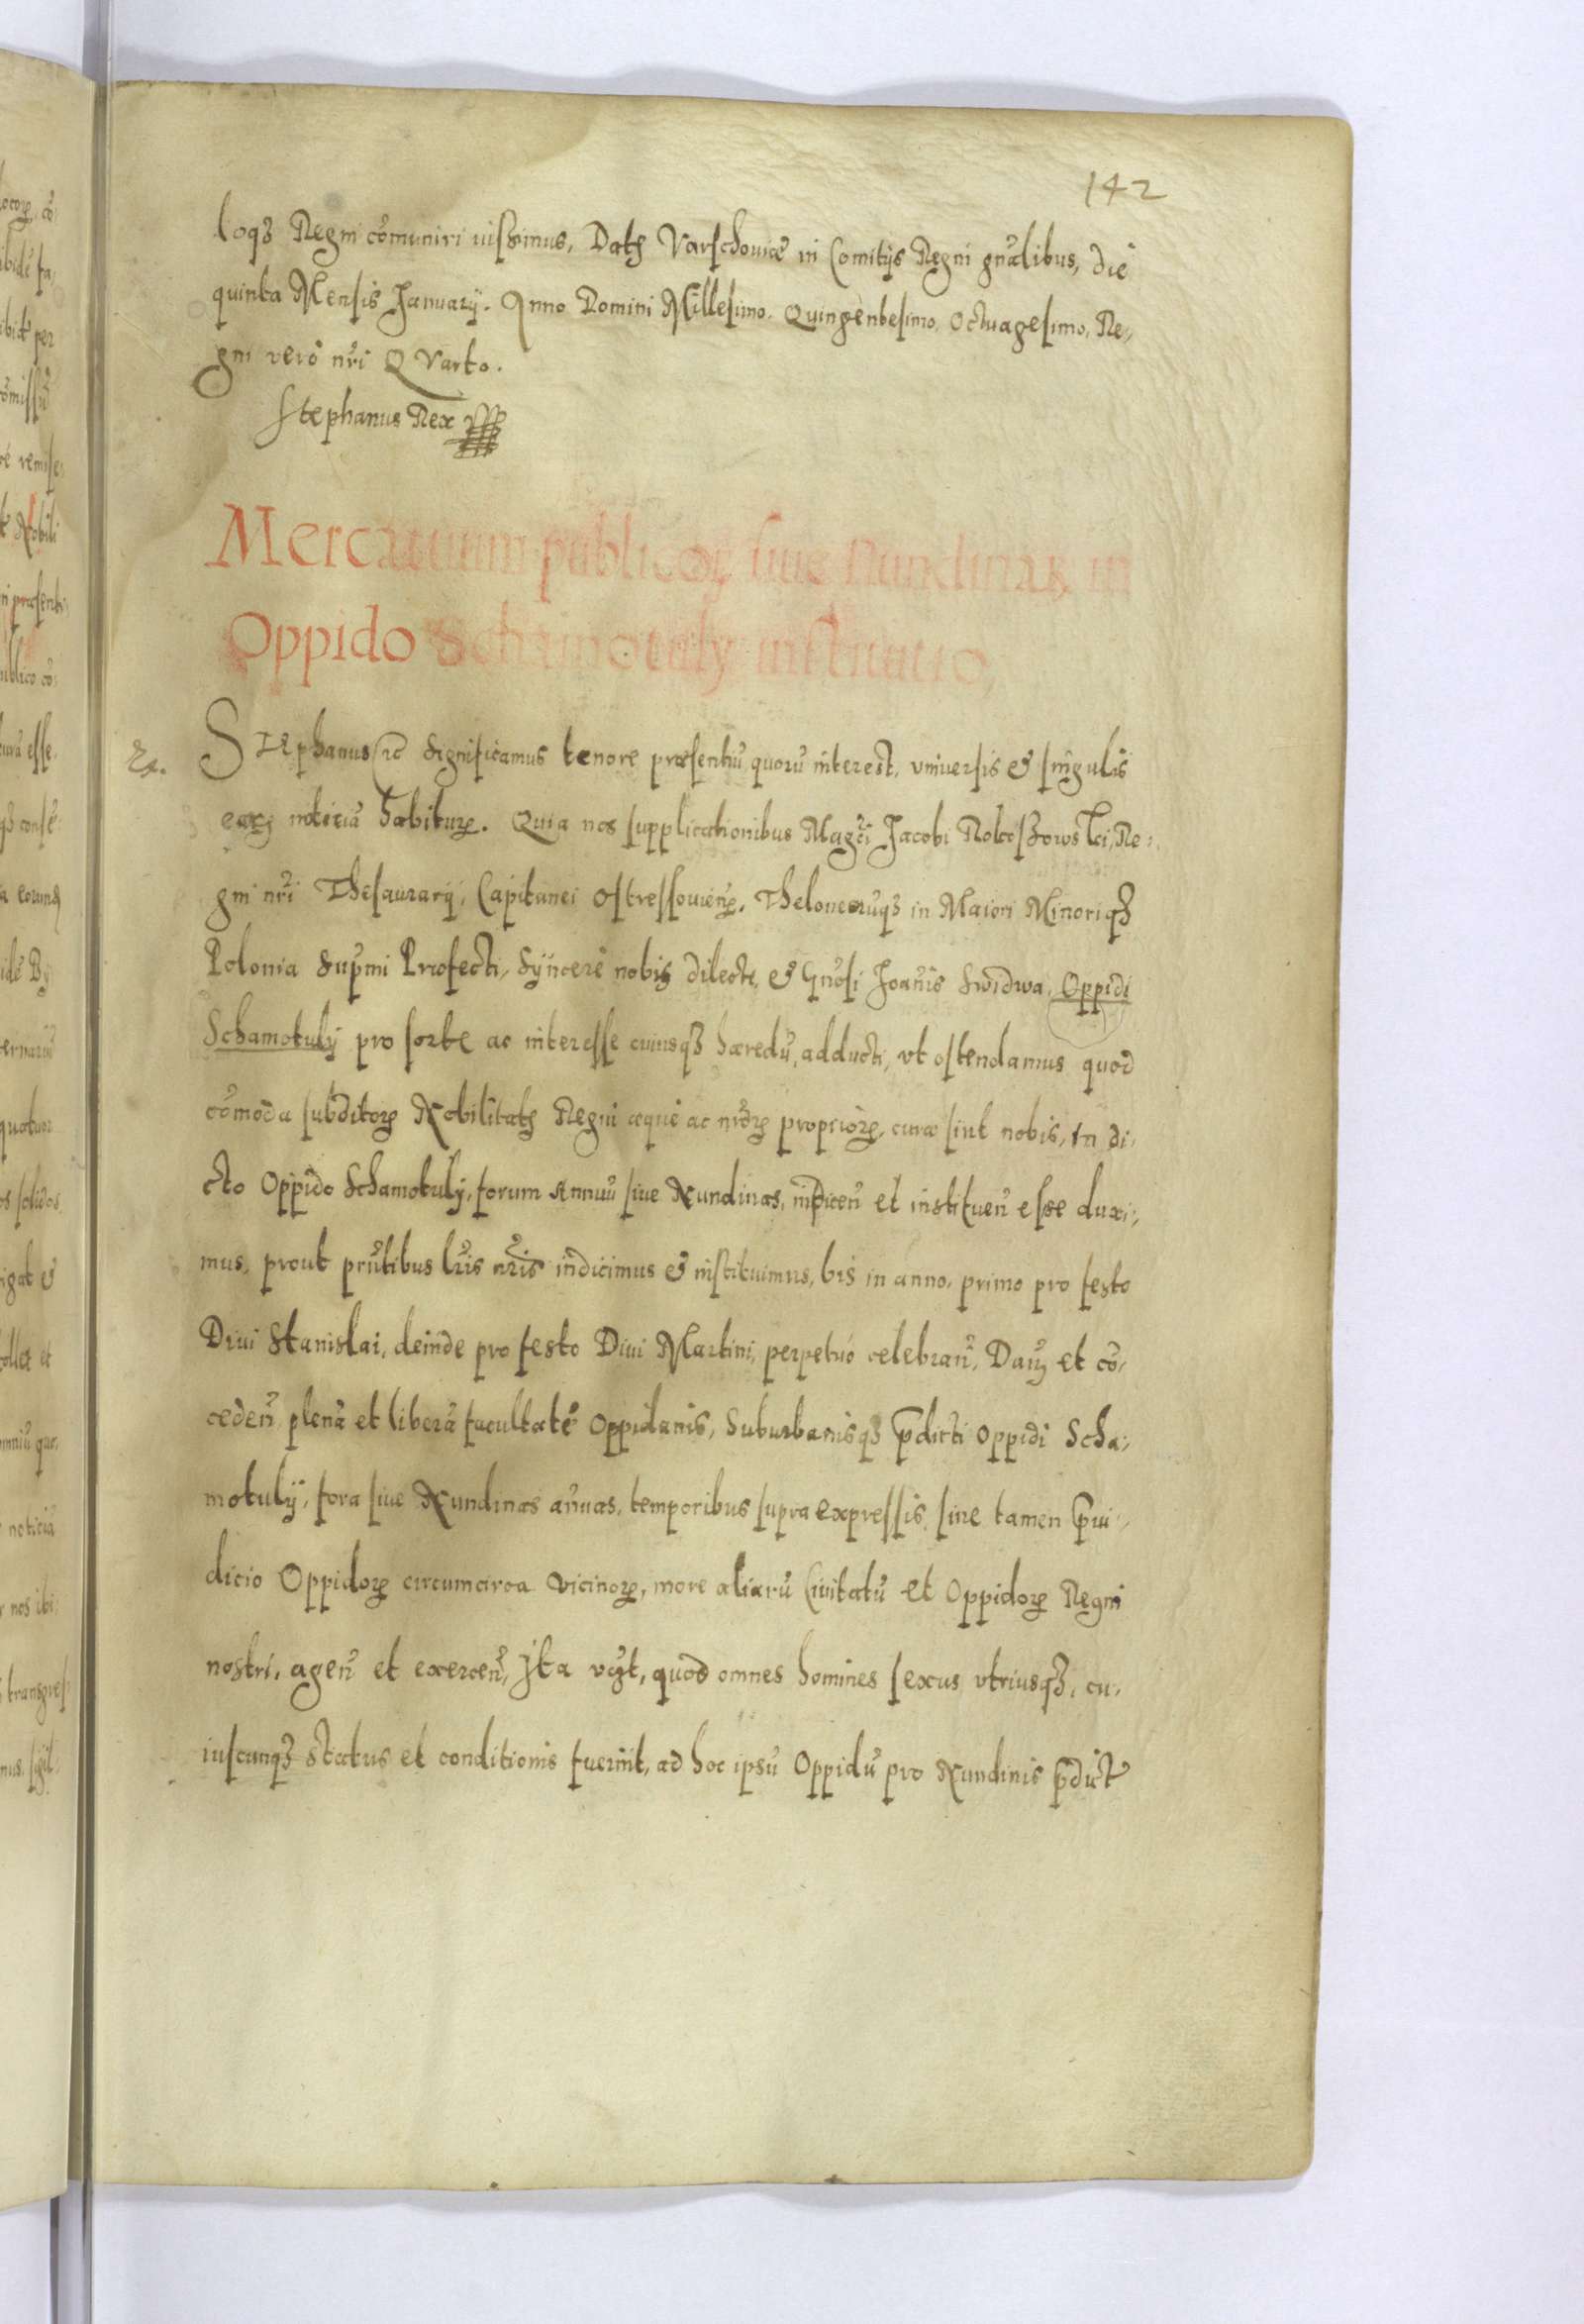 142
loqȝ Regni cõmuniri iussimus, Datꝭ Varschouiæ in Comitijs Regni gnãlibus, die
quinta Mensis Januarij. Anno Domini Millesimo. Quingentesimo. Octuagesimo, Re,,
gni verò nr̃i QVarto.
Stephanus Rex
Mercatuum publicoꝝ siue Nundinaꝝ in
Oppido Schamotuly institutio,
Stephanus etc Significamus tenore præsentiũ quorũ interest, vniuersis et singulis
earꝫ noticiã habiturꝝ. Quia nos supplicationibus Magci Jacobi Rokoszowski, Re,,
gni nr̃i Thesaurarij, Capitanei Ostressouieñ. Theloneorũqȝ in Maiori Minoriqȝ
Polonia Supmi Præfecti, Syncerè nobis dilecti, et Gñosi Joañis Swidwa, Oppidi
Schamotuly pro sorte ac interesse cuiusqȝ hæredũ, adducti, vt ostendamus quod
cõmoda subditoꝝ Nobilitatꝭ Regni æquè ac nr̃oꝝ proprioꝝ, curæ sint nobis, In di,
cto Oppido Schamotuly, forum Annuũ siue Nundinas, indiceñ et instituen̄ esse duxi,,
mus, prout pñtibus lr̃is nr̃is indicimus et instituimus, bis in anno, primo pro festo
Diui Stanislai, deinde pro festo Diui Martini, perpetuò celebrañ, Dañ et cõ,
cedeñ plenã et liberã facultatẽ Oppidanis, Suburbanisqȝ p̄dicti Oppidi Scha,,
motulÿ, fora siue Nundinas añuas, temporibus supra expressis, sine tamen p̄iu,,
dicio Oppidoꝝ circumcirca vicinoꝝ, more aliarũ Ciuitatũ et Oppidoꝝ Regni
nostri, ageñ et exerceñ, Ita vt, quod omnes homines sexus vtriusqȝ, cu,
iuscunqȝ status et conditionis fuerint, ad hoc ipsũ Oppidũ pro Nundinis p̄dict